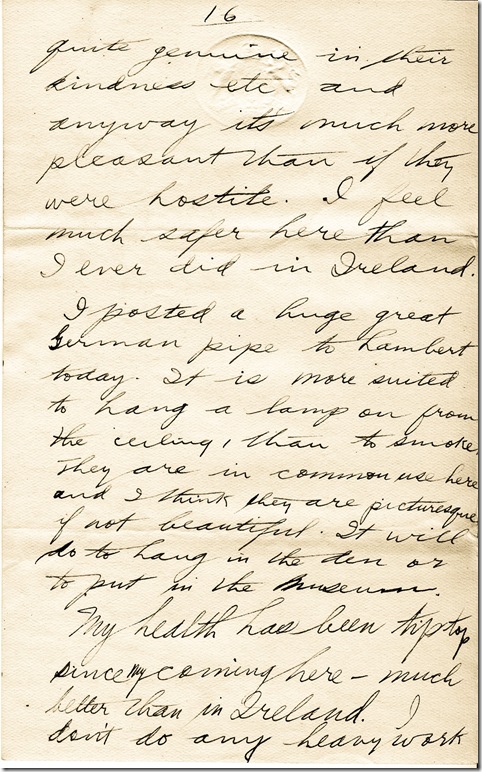 16
quite genuine in their
kindness etc. and
anyway it's much more
pleasant than if they
were hostile. I feel
much safer here than
I ever did in Ireland.
I posted a huge great
German pipe to Lambert
today. It is more suited
to hang a lamp on from
the ceiling, than to smoke.
They are in common use here
and I think they are picturesque
if not beautiful. It will
do to hang in the den or
to put in the museum.
My health has been tip top
since my coming here – much
better than in Ireland. I
don't do any heavy work